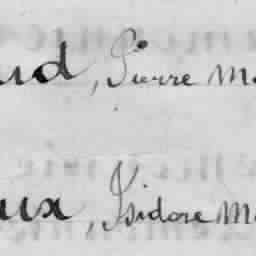 ud, Pierre M
ux, Isidore M